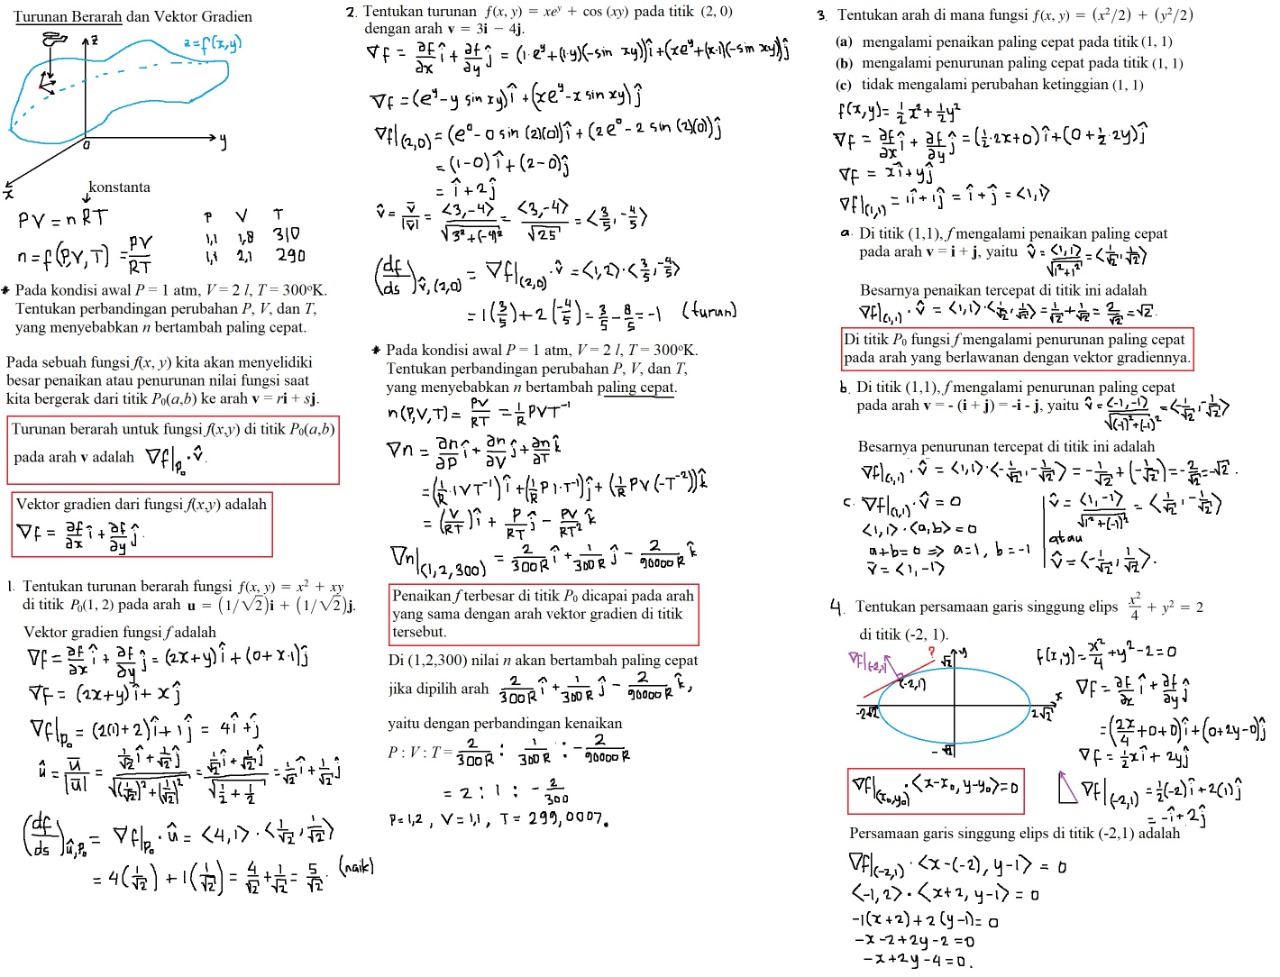 Turunan Berarah dan Vektor Gradien
z=f(x,y)
z
y
0
x
konstanta
PV = nRT
n = f(P,V,T) = PV/RT
P V T
1,1 1,8 310
1,1 2,1 290
* Pada kondisi awal P = 1 atm, V = 2 l, T = 300°K.
Tentukan perbandingan perubahan P, V, dan T,
yang menyebabkan n bertambah paling cepat.
Pada sebuah fungsi f(x, y) kita akan menyelidiki
besar penaikan atau penurunan nilai fungsi saat
kita bergerak dari titik P₀(a,b) ke arah v = ri + sj.
Turunan berarah untuk fungsi f(x,y) di titik P₀(a,b)
pada arah v adalah ∇f|P₀ · v̂.
Vektor gradien dari fungsi f(x,y) adalah
∇f = ∂f/∂x î + ∂f/∂y ĵ.
1. Tentukan turunan berarah fungsi f(x, y) = x² + xy
di titik P₀(1, 2) pada arah u = (1/√2)i + (1/√2)j.
Vektor gradien fungsi f adalah
∇f = ∂f/∂x î + ∂f/∂y ĵ = (2x+y)î + (0+x·1)ĵ
∇f = (2x+y)î + xĵ
∇f|P₀ = (2(1)+2)î + 1ĵ = 4î + ĵ
û = u̅/|u̅| = (1/√2 î + 1/√2 ĵ)/√((1/√2)² + (1/√2)²) = (1/√2 î + 1/√2 ĵ)/√(1/2 + 1/2) = 1/√2 î + 1/√2 ĵ
(df/ds)û,P₀ = ∇f|P₀ · û = <4,1> · <1/√2, 1/√2>
= 4(1/√2) + 1(1/√2) = 4/√2 + 1/√2 = 5/√2. (naik)
2. Tentukan turunan f(x, y) = xeʸ + cos (xy) pada titik (2, 0)
dengan arah v = 3i − 4j.
∇f = ∂f/∂x î + ∂f/∂y ĵ = (1·eʸ + (1·y)(-sin xy))î + (xeʸ + (x·1)(-sin xy))ĵ
∇f = (eʸ - y sin xy)î + (xeʸ - x sin xy)ĵ
∇f|(2,0) = (e⁰ - 0 sin (2)(0))î + (2e⁰ - 2 sin (2)(0))ĵ
= (1-0)î + (2-0)ĵ
= î + 2ĵ
v̂ = v̅/|v̅| = <3,-4>/√(3² + (-4)²) = <3,-4>/√25 = <3/5, -4/5>
(df/ds)v̂,(2,0) = ∇f|(2,0) · v̂ = <1,2> · <3/5, -4/5>
= 1(3/5) + 2(-4/5) = 3/5 - 8/5 = -1 (turun)
* Pada kondisi awal P = 1 atm, V = 2 l, T = 300°K.
Tentukan perbandingan perubahan P, V, dan T,
yang menyebabkan n bertambah paling cepat.
n(P,V,T) = PV/RT = 1/R PVT⁻¹
∇n = ∂n/∂P î + ∂n/∂V ĵ + ∂n/∂T k̂
= (1/R · 1VT⁻¹)î + (1/R P1·T⁻¹)ĵ + (1/R PV(-T⁻²))k̂
= (V/RT)î + P/RT ĵ - PV/RT² k̂
∇n|(1,2,300) = 2/300R î + 1/300R ĵ - 2/90000R k̂
Penaikan f terbesar di titik P₀ dicapai pada arah
yang sama dengan arah vektor gradien di titik
tersebut.
Di (1,2,300) nilai n akan bertambah paling cepat
jika dipilih arah 2/300R î + 1/300R ĵ - 2/90000R k̂,
yaitu dengan perbandingan kenaikan
P : V : T = 2/300R : 1/300R : -2/90000R
= 2 : 1 : -2/300
P=1,2 , V=1,1 , T= 299,0007.
3. Tentukan arah di mana fungsi f(x, y) = (x²/2) + (y²/2)
(a) mengalami penaikan paling cepat pada titik (1, 1)
(b) mengalami penurunan paling cepat pada titik (1, 1)
(c) tidak mengalami perubahan ketinggian (1, 1)
f(x,y) = 1/2 x² + 1/2 y²
∇f = ∂f/∂x î + ∂f/∂y ĵ = (1/2·2x+0)î + (0+1/2·2y)ĵ
∇f = xî + yĵ
∇f|(1,1) = 1î + 1ĵ = î + ĵ = <1,1>
a. Di titik (1,1), f mengalami penaikan paling cepat
pada arah v = i + j, yaitu v̂ = <1,1>/√(1²+1²) = <1/√2, 1/√2>
Besarnya penaikan tercepat di titik ini adalah
∇f|(1,1) · v̂ = <1,1> · <1/√2, 1/√2> = 1/√2 + 1/√2 = 2/√2 = √2.
Di titik P₀ fungsi f mengalami penurunan paling cepat
pada arah yang berlawanan dengan vektor gradiennya.
b. Di titik (1,1), f mengalami penurunan paling cepat
pada arah v = - (i + j) = -i - j, yaitu v̂ = <-1,-1>/√((-1)²+(-1)²) = <-1/√2, -1/√2>
Besarnya penurunan tercepat di titik ini adalah
∇f|(1,1) · v̂ = <1,1> · <-1/√2, -1/√2> = -1/√2 + (-1/√2) = -2/√2 = -√2.
c. ∇f|(1,1) · v̂ = 0
<1,1> · <a,b> = 0
a+b=0 ⇒ a=1, b=-1
v̅ = <1,-1>
v̂ = <1,-1>/√(1²+(-1)²) = <1/√2, -1/√2>
atau
v̂ = <-1/√2, 1/√2>.
4. Tentukan persamaan garis singgung elips x²/4 + y² = 2
di titik (-2, 1).
∇f|(-2,1)
?
y
√2
(-2,1)
x
-2√2
2√2
-√2
f(x,y) = x²/4 + y² - 2 = 0
∇f = ∂f/∂x î + ∂f/∂y ĵ
= (2x/4 + 0 + 0)î + (0 + 2y - 0)ĵ
∇f = 1/2 xî + 2yĵ
∇f|(-2,1) = 1/2(-2)î + 2(1)ĵ
= -î + 2ĵ
∇f|(x₀,y₀) · <x-x₀, y-y₀> = 0
Persamaan garis singgung elips di titik (-2,1) adalah
∇f|(-2,1) · <x-(-2), y-1> = 0
<-1,2> · <x+2, y-1> = 0
-1(x+2) + 2(y-1) = 0
-x-2+2y-2=0
-x+2y-4=0.